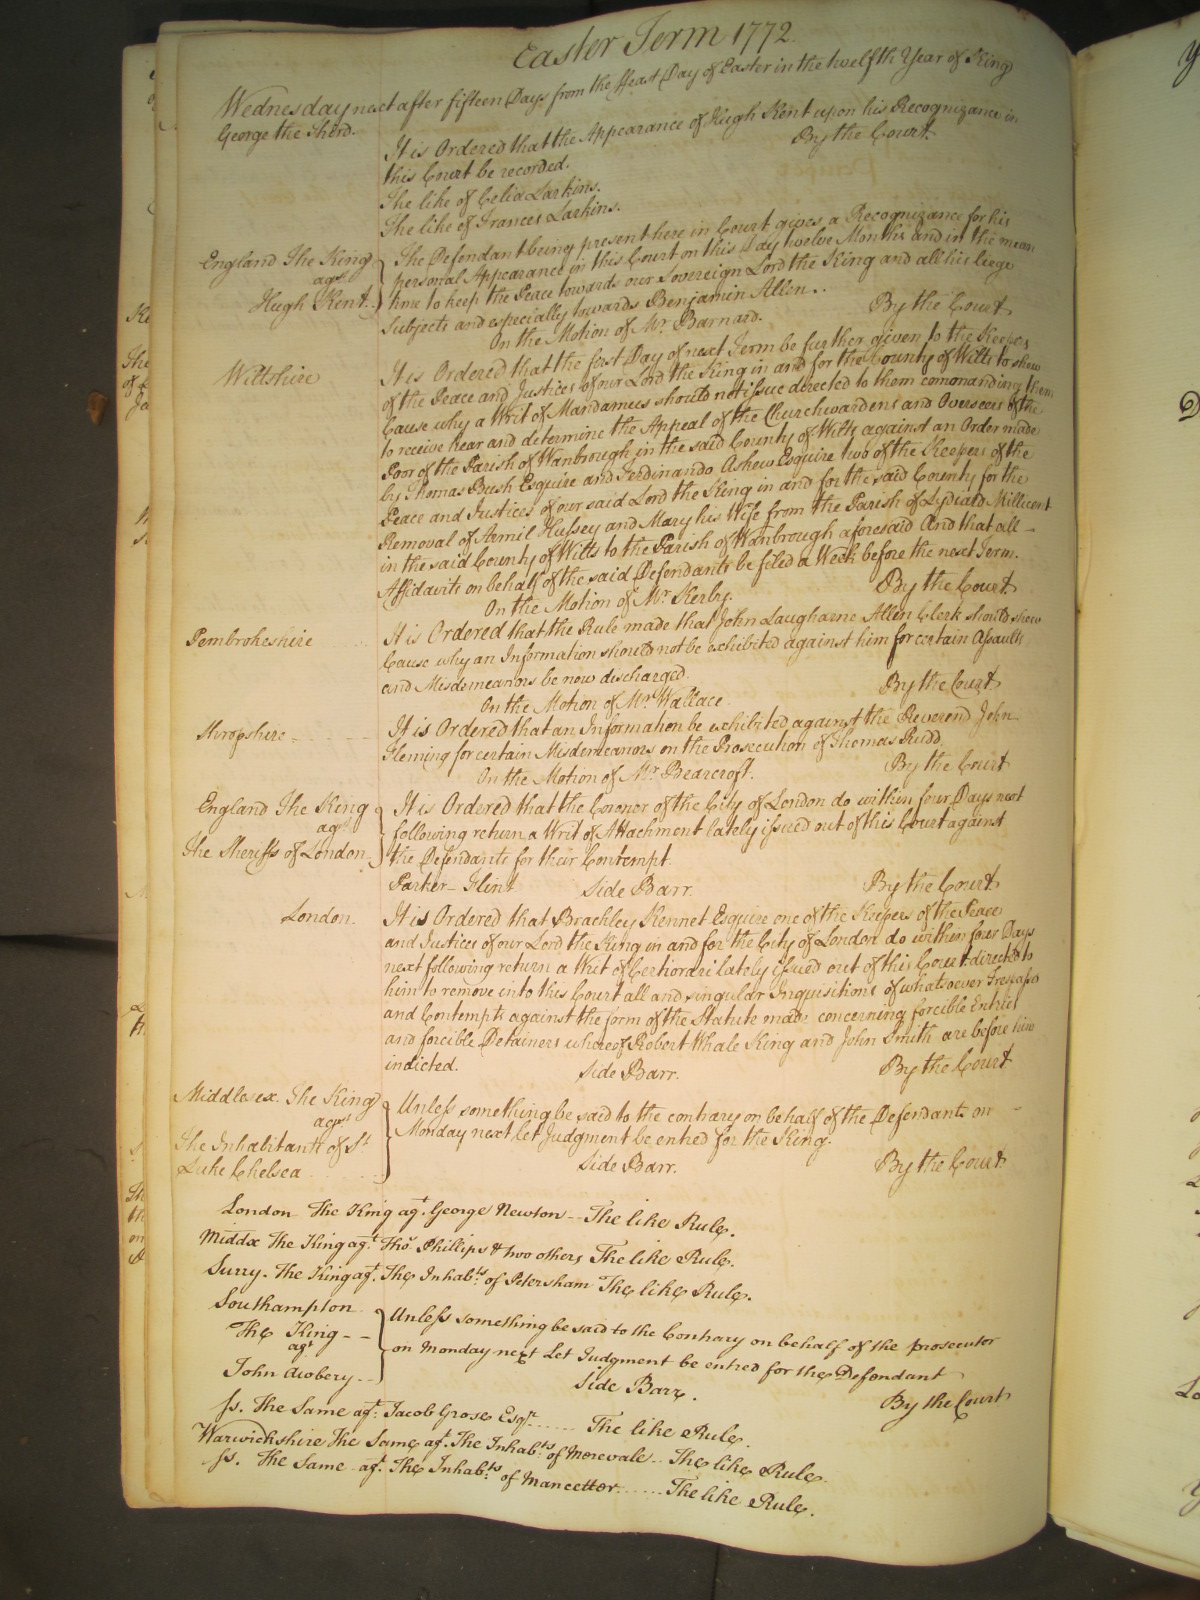 Easter Term 1772.
Wednesday next after fifteen Days from the ffeast Day of Easter in the twelfth Year of King
George the Third.
It is Ordered that the Appearance of Hugh Kent upon his Recognizance in
this Court be recorded. By the Court
The like of Celia Larkins.
The like of Frances Larkins.
England The King
agst
Hugh Kent.
The Defendant being present here in Court gives a Recognizance for his
personal Appearance in this Court on this Day twelve Months and in the mean
time to keep the Peace towards our Sovereign Lord the King and all his liege
Subjects and especially towards Benjamin Allen..
On the Motion of Mr. Barnard. By the Court
Wiltshire
It is Ordered that the first Day of next Term be further given to the Keepers
of the Peace and Justices of our Lord the King in and for the County of Wilts to shew
Cause why a Writ of Mandamus should not issue directed to them comanding them
to receive hear and determine the Appeal of the Churchwardens and Overseers of the
Poor of the Parish of Wanbrough in the said County of Wilts against an Order made
by Thomas Bush Esquire and Ferdinando Askew Esquire two of the Keepers of the
Peace and Justices of our said Lord the King in and for the said County for the
Removal of Hussey and Mary his Wife from the Parish of Lydiard Millicent
in the said County of Wilts to the Parish of Wanbrough aforesaid And that all
Affidavits on behalf of the said Defendants be filed a Week before the next Term.
On the Motion of Mr. Kerby. By the Court
Pembrokeshire
It is Ordered that the Rule made that John Laugharne Allen Clerk should shew
Cause why an Information should not be exhibited against him for certain Assaults
and Misdemeanors be now discharged.
On the Motion of Mr. Wallace By the Court
Shropshire
It is Ordered that an Information be exhibited against the Reverend John
Fleming for certain Misdemeanors on the Prosecution of Thomas Rudd.
On the Motion of Mr. Bearcroft. By the Court
England The King
agst
The Sheriffs of London.
It is Ordered that the Coroner of the City of London do within four Days next
following return a Writ of Attachment lately issued out of this Court against
the Defendants for their Contempt.
Parker – Flint Side Barr. By the Court
London.
It is Ordered that Brackley Kennet Esquire one of the Keepers of the Peace
and Justices of our Lord the King in and for the City of London do within four Days
next following return a Writ of Certiorari lately issued out of this Court directed to
him to remove into this Court all and singular Inquisitions of whatsoever Trespasses
and Contempts against the form of the Statute made concerning forcible Entries
and forcible Detainers whereof Robert Whale King and John Smith are before him
indicted. Side Barr. By the Court
Middlesex. The King
agst
The Inhabitants of St.
Luke Chelsea
Unless something be said to the contrary on behalf of the Defendants on
Monday next let Judgment be entred for the King.
Side Barr. By the Court
London The King agt. George Newton -- The like Rule.
Middx The King agt. Thos. Phillips & two others The like Rule.
Surry. The King agt. The Inhabts. of Petersham The like Rule.
Southampton
The King - -
agt
John Awbery. -
Unless something be said to the Contrary on behalf of the prosecutor
on Monday next Let Judgment be entred for the Defendant
Side Barr. By the Court
ss. The Same agt. Jacob Grose Esqr. ...... The like Rule.
Warwickshire The Same agt. The Inhabts. of Merevale .. The like Rule.
ss. The Same agt. The Inhabts. of Mancetter ...... The like Rule.